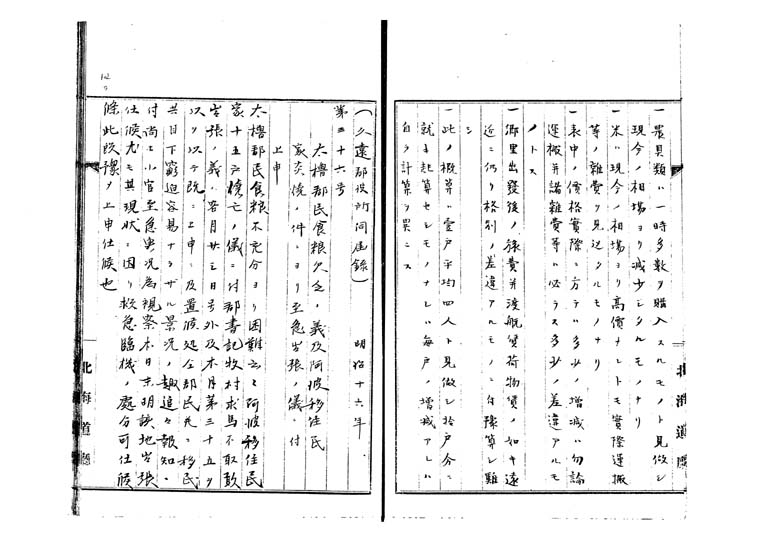 一農具類ハ一時多数ヲ購入スルモノト見做シ
現今ノ相場ヨリ減少シタルモノナリ
一米ハ現今ノ相場ヨリ高價ナレトモ實際運搬
等ノ雑費ヲ見込タルモノナリ
一表中ノ價格實際ニ方テハ多少ノ増減ハ勿論
運搬并諸雑費等ニ必ラス多少ノ差違アルモ
ノトス
一郷里出發後ノ旅費并渡航賃荷物賃ノ如キ遠
近ニ仍リ格別ノ差違アルモノニ付豫算シ難
シ
此ノ概算ハ壹戸平均四人ト見做シ拾戸分ニ
就キ起算セシモノナレハ毎戸ノ増減アレハ
自ラ計算ヲ異ニス
北海道廳
(久遠郡役所同届録) 明治十六年
第三十六号
太櫓郡民食粮欠乏ノ義及阿波移住民
家炎焼ノ件ニヨリ至急出張ノ儀ニ付
上申
太櫓郡民食粮不充分ヨリ困難云々阿波移住民
家十五戸焼亡ノ儀ニ付郡書記牧村求馬不取敢
出張ノ義ハ客月廿三日号外及本月第三十五号
以リ以テ既ニ上申ニ及置候処全郡民并ニ移民
共目下窮迫容易ナラザル景況ノ趣追々報知ニ
付尚ホ小官至急実況為視察本日未明該地出張
仕候尤モ其現状ニ因リ救急臨機ノ處分可仕候
條此段豫メ上申仕候也
北海道廳